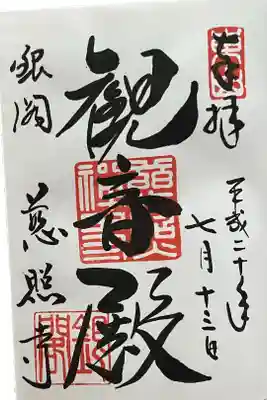 奉拝
平成二十年
七月十三日
観音殿
銀閣
慈照寺